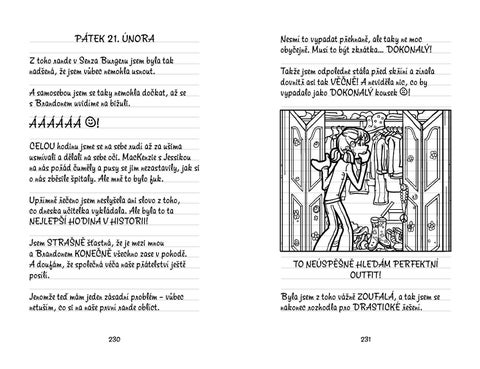 PÁTEK 21. ÚNORA
Z toho rande v Senza Burgeru jsem byla tak
nadšená, že jsem vůbec nemohla usnout.
A samosebou jsem se taky nemohla dočkat, až se
s Brandonem uvidíme na bižuli.
ÁÁÁÁÁÁ ☺!
CELOU hodinu jsme se na sebe rudí až za ušima
usmívali a dělali na sebe oči. MacKenzie s Jessikou
na nás pořád čuměly a pusy se jim nezastavily, jak si
o nás zběsile špitaly. Ale mně to bylo fuk.
Upřímně řečeno jsem neslyšela ani slovo z toho,
co dneska učitelka vykládala. Ale byla to ta
NEJLEPŠÍ HODINA V HISTORII!
Jsem STRAŠNĚ šťastná, že je mezi mnou
a Brandonem KONEČNĚ všechno zase v pohodě.
A doufám, že společná věča naše přátelství ještě
posílí.
Jenomže teď mám jeden zásadní problém – vůbec
netuším, co si na naše první rande obléct.
230
Nesmí to vypadat přehnaně, ale taky ne moc
obyčejně. Musí to být zkrátka... DOKONALÝ!
Takže jsem odpoledne stála před skříní a zírala
dovnitř asi tak VĚČNĚ! A neviděla nic, co by
vypadalo jako DOKONALÝ kousek ☹!
TO NEÚSPĚŠNĚ HLEDÁM PERFEKTNÍ
OUTFIT!
Byla jsem z toho vážně ZOUFALÁ, a tak jsem se
nakonec rozhodla pro DRASTICKÉ řešení.
231